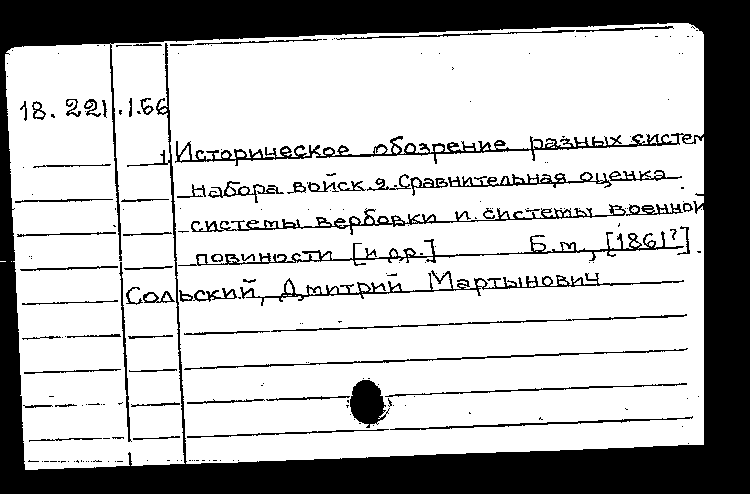 18.221.1.56
1. Историческое обозрение разных систем
набора войск. 2. Сравнительная оценка
системы вербовки и системы военной
повиности [и др.] Б.м., [1861?].
Сольский, Дмитрий Мартынович